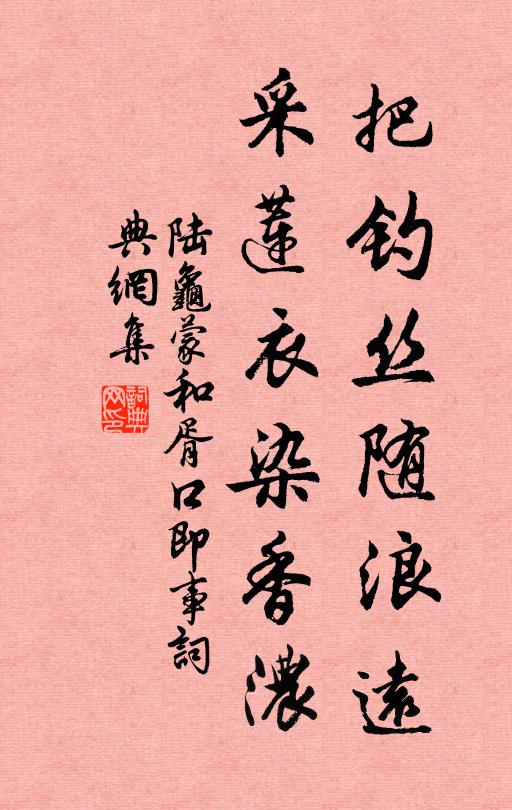 把钓丝随浪远
采莲衣染香濃
陆龜蒙和胥口即事詞
典網集
詞典
网印